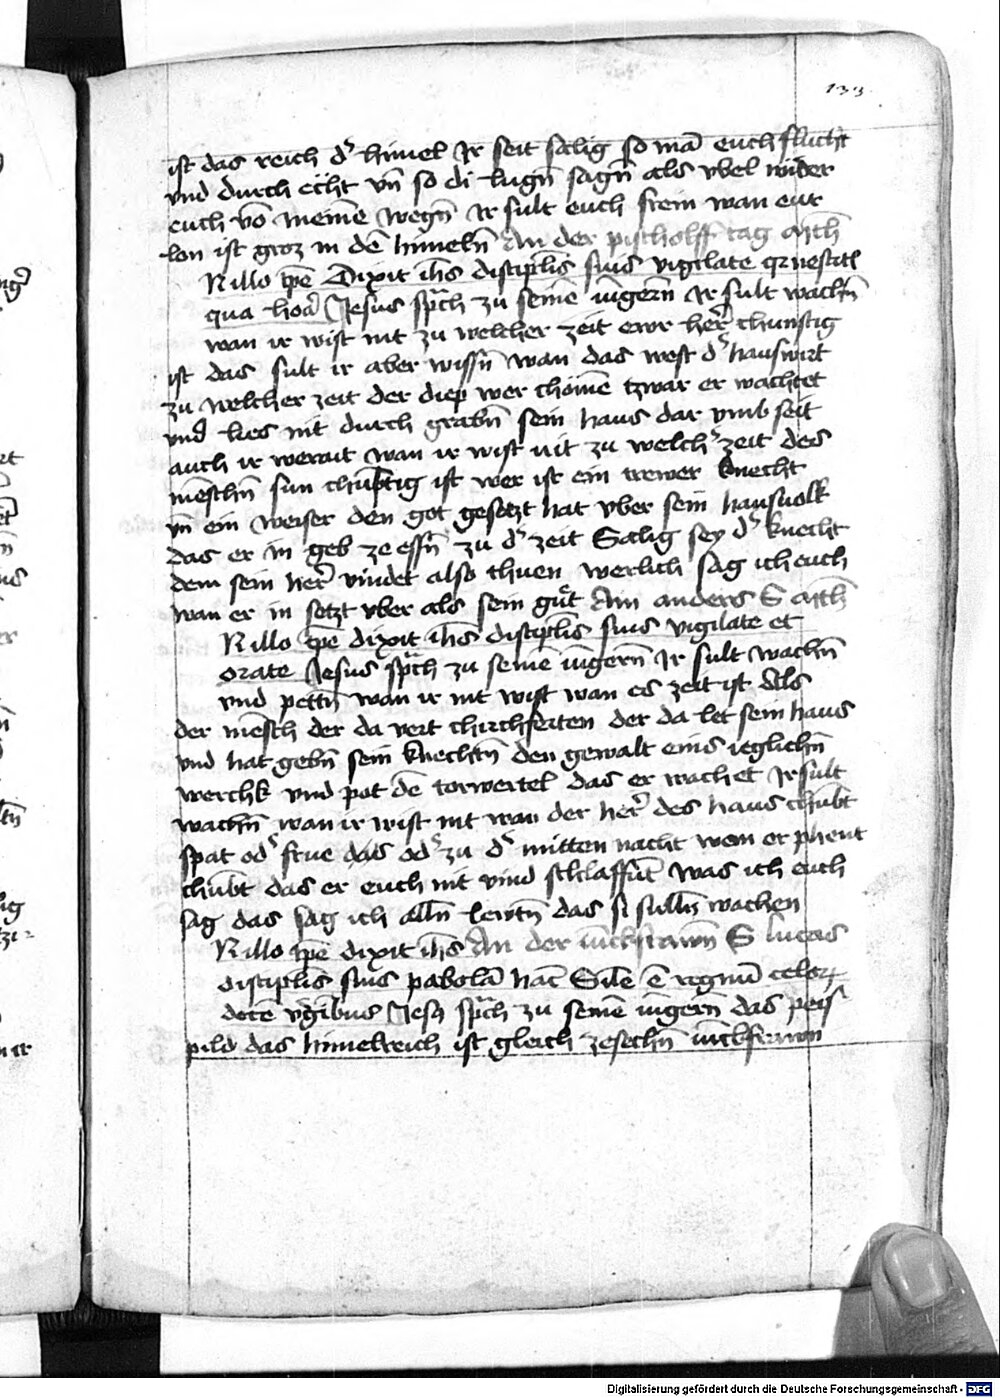 133
ist das reich dˀ himel Jr seit salig so mā euch flucht
vnd durch ѐcht vn̄ so di lugn̄ sagn̄ als vbel wider
euch vō meinē wegn̄ Jr sult euch frein wan eur
lon ist groz in dē himeln̄ An der pischolff tag Mth̄
N illo tp̄e Dixit ih̄s discipl̄is suis vigilate qr nescitꝭ
qua hoā Jesus spͣch zu seinē iūgern̄ Jr sult wachn̄
wan ir wist nit zu welcher zeit ewr herˀ chunftig
ist das sult ir aber wissn̄ wan das west dˀ hauswirt
zu welcher zeit der diep wer chōmē tzwar er wachtet
vnd lies nit durch grabn̄ sein haus dar vmb seit
auch ir werait wan ir wist nit zu welchˀ zeit des
mēschn̄ sun chūbtig ist wer ist ein trewer knecht
vn̄ ein weiser den got gesetzt hat vber sein hausuolk
das er in geb ze essn̄ zu dˀ zeit Salig sey dˀ knecht
dem sein herˀ vindet also thuen werlich sag ich euch
wan er in setzt vber als sein gůt Am anders S Mth̄
N illo tp̄e dixit ih̄s discipl̄is suis vigilate et
orate Jesus spͣch zu seinē iūgern̄ Jr sult wachn̄
vnd pettn̄ wan ir nit wist wan es zeit ist Als
der mēsch der da vert chirchferten der da let sein haus
vnd hat gebn̄ sein knechtn̄ den gewalt eins iglichn̄
werchk vnd pot dē torwertel das er wachet Jr sult
wachn̄ wan ir wist nit wan der herˀ des haus chūbt
spat odˀ frue das odˀ zu dˀ mitten nacht wem er
chūbt das er euch nit vind schlaffūt was ich euch
sag das sag ich alln̄ lewtn̄ das si sulln̄ wachen
N illo tp̄e dixit ih̄s An der iūckfrawn̄ S lucas
discipl̄is suis pabolā hāc Sil̄e ē regnū celoꝝ
decē vˀgībus Jesꝰ spͣch zu seinē iūgern̄ das peis
pild das himelreich ist gleich zesechn̄ iūckfrawn
Digitalisierung gefördert durch die Deutsche Forschungsgemeinschaft - DFG